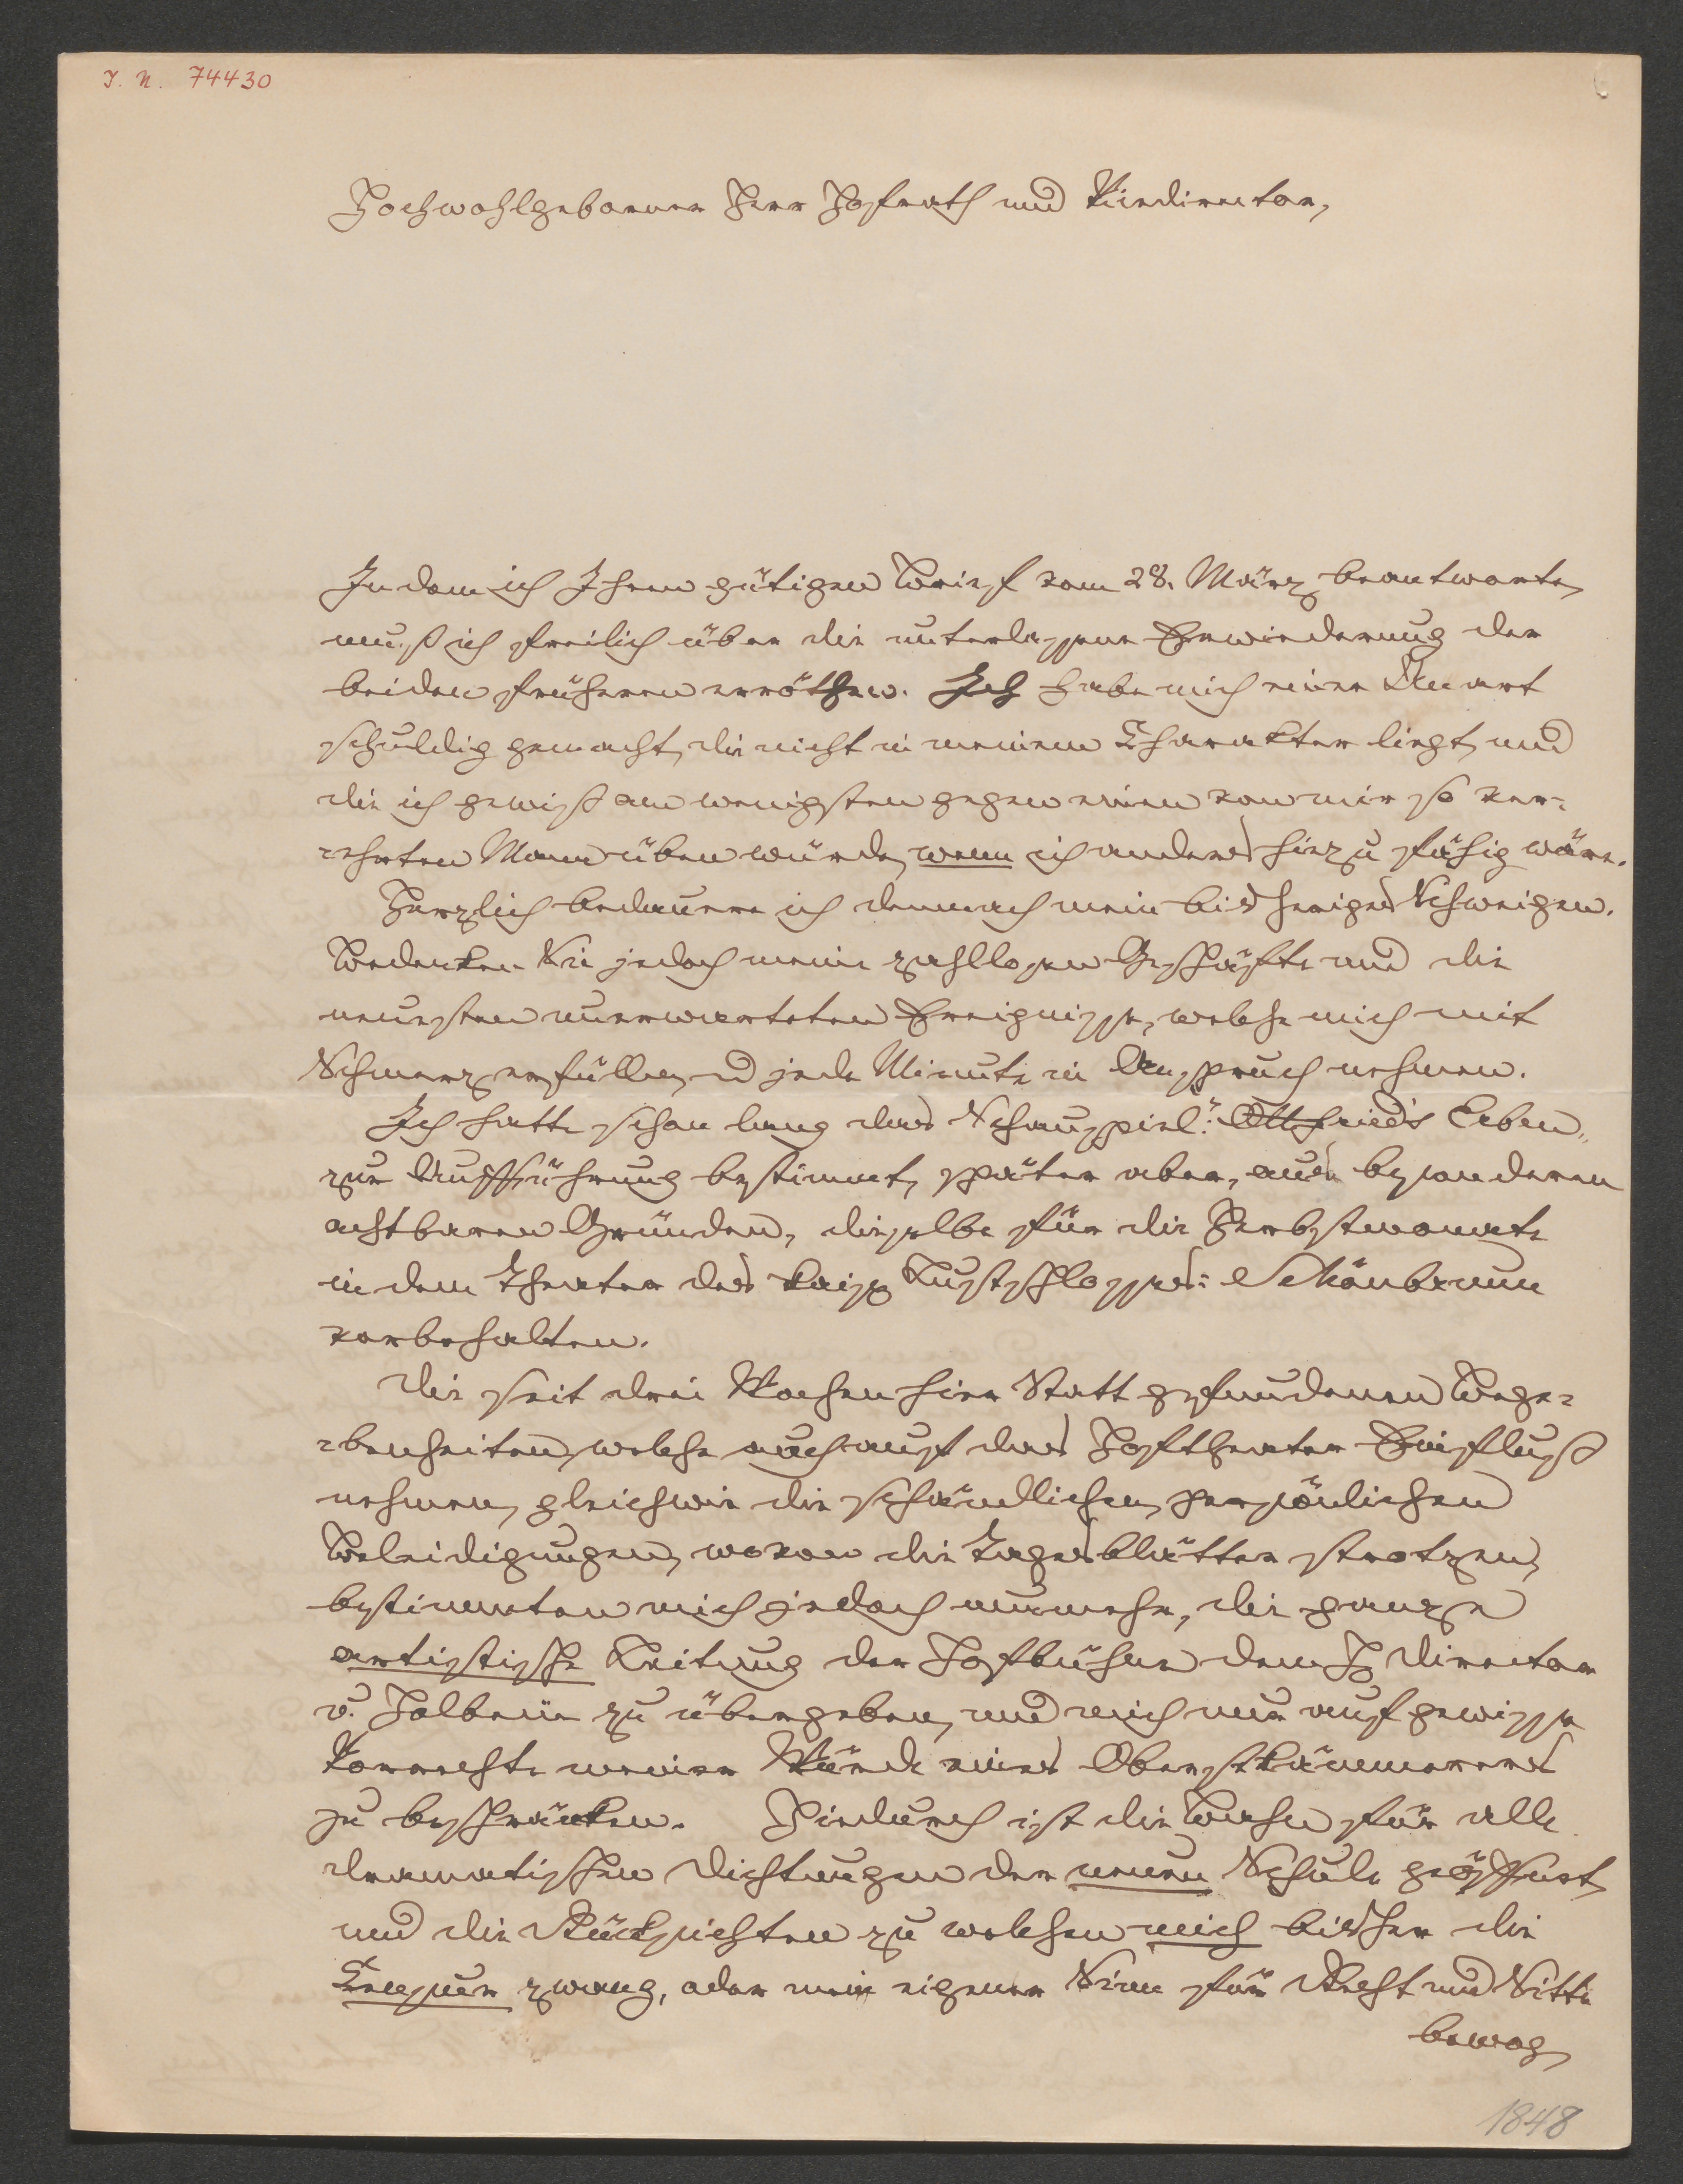 I. N. 74430
Hochwohlgeborner Herr Hofrath und Vicedirector,
Indem ich Ihren gütigen Brief vom 28. März beantworte,
muß ich freilich über die unterlassene Erwiederung der
beiden früheren erröthen. Ich habe mich einer Unart
schuldig gemacht, die nicht in meinem Charakter liegt, und
die ich gewiß am wenigsten gegen einen von mir so ver-
ehrten Mann üben würde, wenn ich anders hiezu fähig wäre.
Herzlich bedauere ich demnach mein bisheriges Schweigen.
Bedenken Sie jedoch meine zahllosen Geschäfte und die
neuesten unerwarteten Ereignisse, welche mich mit
Schmerz erfüllen, u jede Minute in Anspruch nehmen.
Ich hatte schon lang das Schauspiel: "Ottfried's Erben"
zur Aufführung bestimmt, später aber, aus besonderen
achtbaren Gründen, dieselbe für die Herbstmonate
in dem Theater des kais Lustschlosses: Schönbrunn
vorbehalten.
Die seit drei Wochen hier Statt gefundenen Bege-
benheiten, welche auch auf das Hoftheater Einfluß
nehmen, gleichwie die schändlichen, persönlichen
Beleidigungen, wovon die Tagesblätter strotzen,
bestimmten mich jedoch nunmehr, die ganze
artistische Leitung der Hofbühne dem H Director
v. Holbein zu übergeben, und mich nur auf gewisse
Vorrechte meiner Würde eines Oberstkämmerers
zu beschränken. Hiedurch ist die Bahn für alle
dramatischen Dichtungen der neuen Schule geöffnet,
und die Rücksichten zu welchen mich bisher die
Censur zwang, oder mein eigener Sinn für Recht und Sitte
bewog,
1848